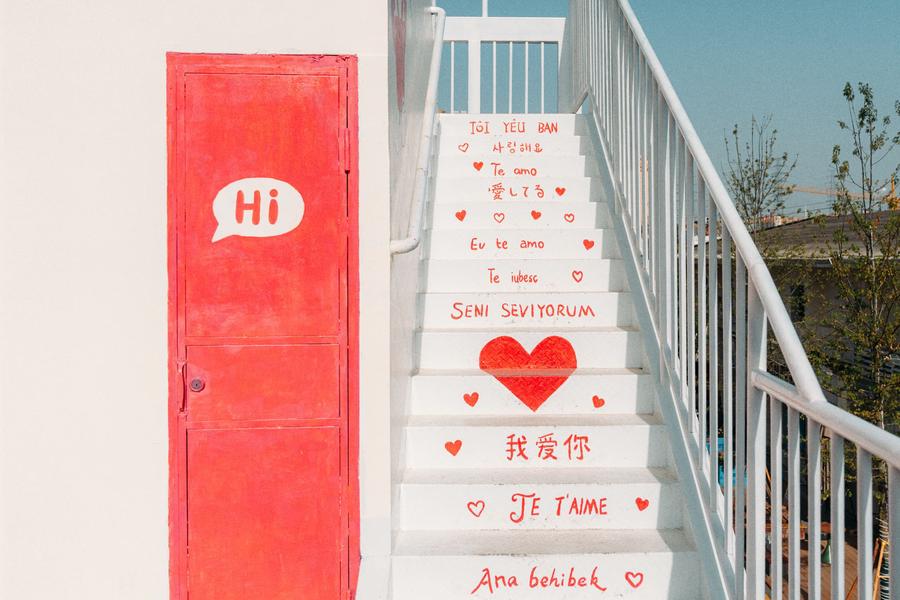 Hi
TÔI YÊU BAN
사랑해요
Te amo
愛してる
Eu te amo
Te iubesc
SENI SEVIYORUM
我爱你
JE T'AIME
Ana behibek